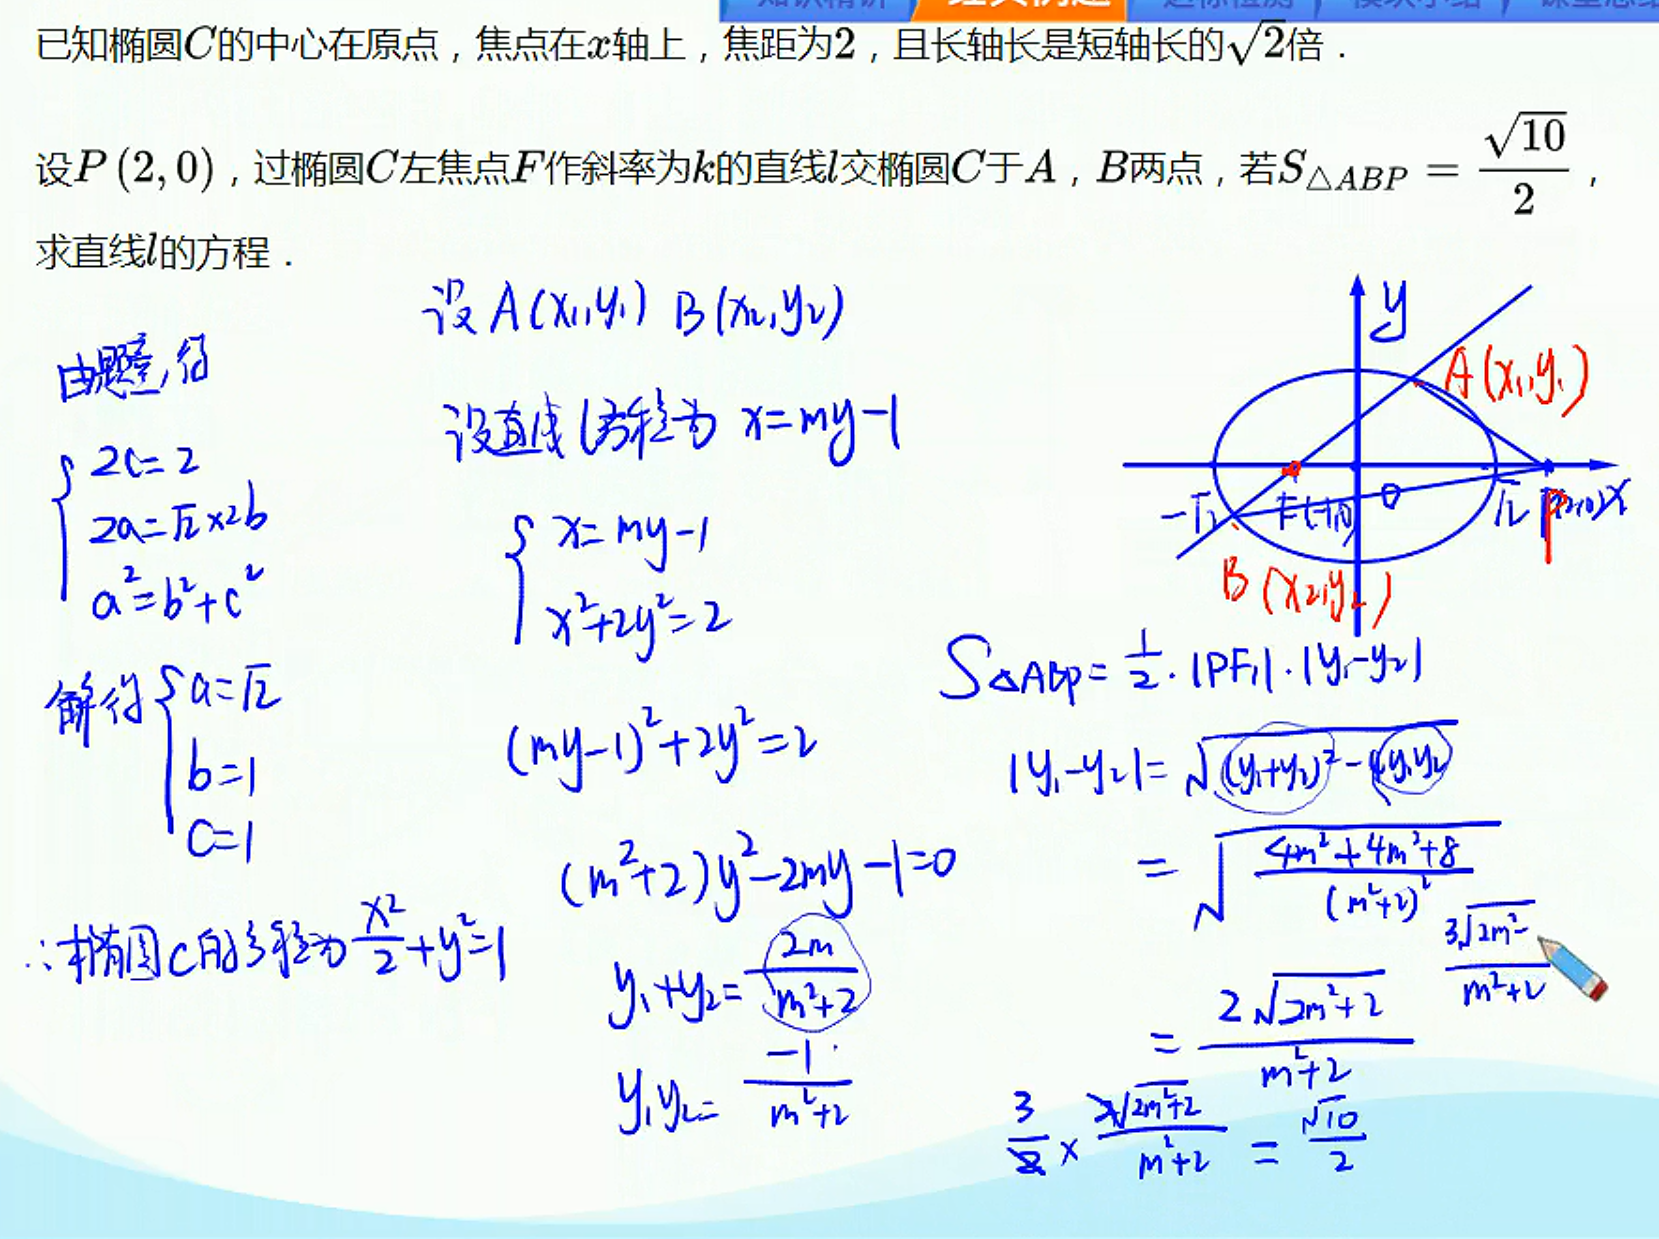 已知椭圆C的中心在原点，焦点在x轴上，焦距为2，且长轴长是短轴长的√2倍．
设P(2,0)，过椭圆C左焦点F作斜率为k的直线l交椭圆C于A，B两点，若S△ABP = √10/2，
求直线l的方程．
由题意,得
{2c=2
2a=√2×2b
a²=b²+c²
解得{a=√2
b=1
c=1
∴椭圆C的方程为 x²/2+y²=1
设A(x₁,y₁) B(x₂,y₂)
设直线l方程为 x=my-1
{x=my-1
x²+2y²=2
(my-1)²+2y²=2
(m²+2)y²-2my-1=0
y₁+y₂=2m/(m²+2)
y₁y₂=-1/(m²+2)
y
A(x₁,y₁)
-√2 F(-1,0) O √2 P(2,0) x
B(x₂,y₂)
S△ABP=1/2·|PF₁|·|y₁-y₂|
|y₁-y₂|=√((y₁+y₂)²-4y₁y₂)
=√((4m²+4m²+8)/(m²+2)²)
3√2m²-/m²+2
=2√(2m²+2)/(m²+2)
3/2×2√(2m²+2)/(m²+2)=√10/2